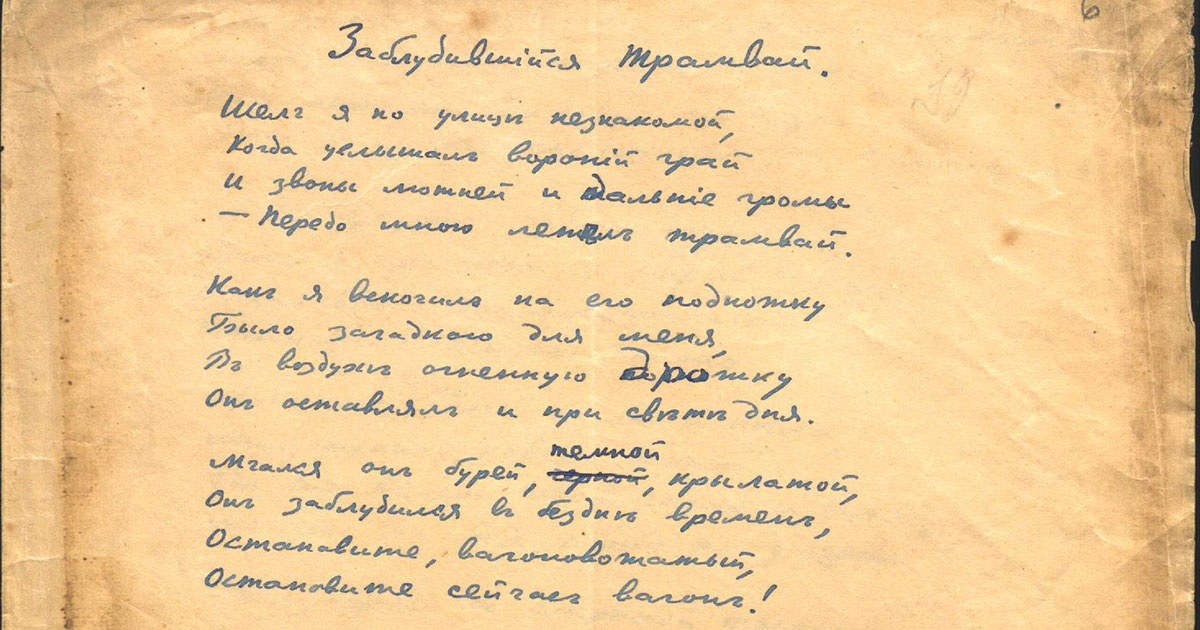 6
Заблудившійся трамвай.
Шелъ я по улицѣ незнакомой,
Когда услышалъ вороній грай
И звоны лютней и дальніе громы
— Передо мною летѣлъ трамвай.
Какъ я вскочилъ на его подножку
Было загадкою для меня,
Въ воздухѣ огненную дорожку
Онъ оставлялъ и при свѣтѣ дня.
темной
Мчался онъ бурей, черной, крылатой,
Онъ заблудился въ безднѣ временъ,
Остановите, вагоновожатый,
Остановите сейчасъ вагонъ!